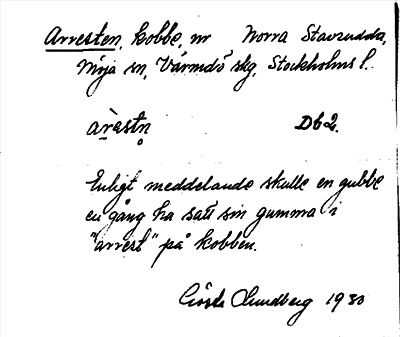 Arresten, kobbe, nr Norra Stavsudda,
Möja sn, Värmdö skg, Stockholms l.
arestn̥ Db2.
Enligt meddelande skulle en gubbe
en gång ha satt sin gumma i
"arrest" på kobben.
Gösta Sundberg 1930